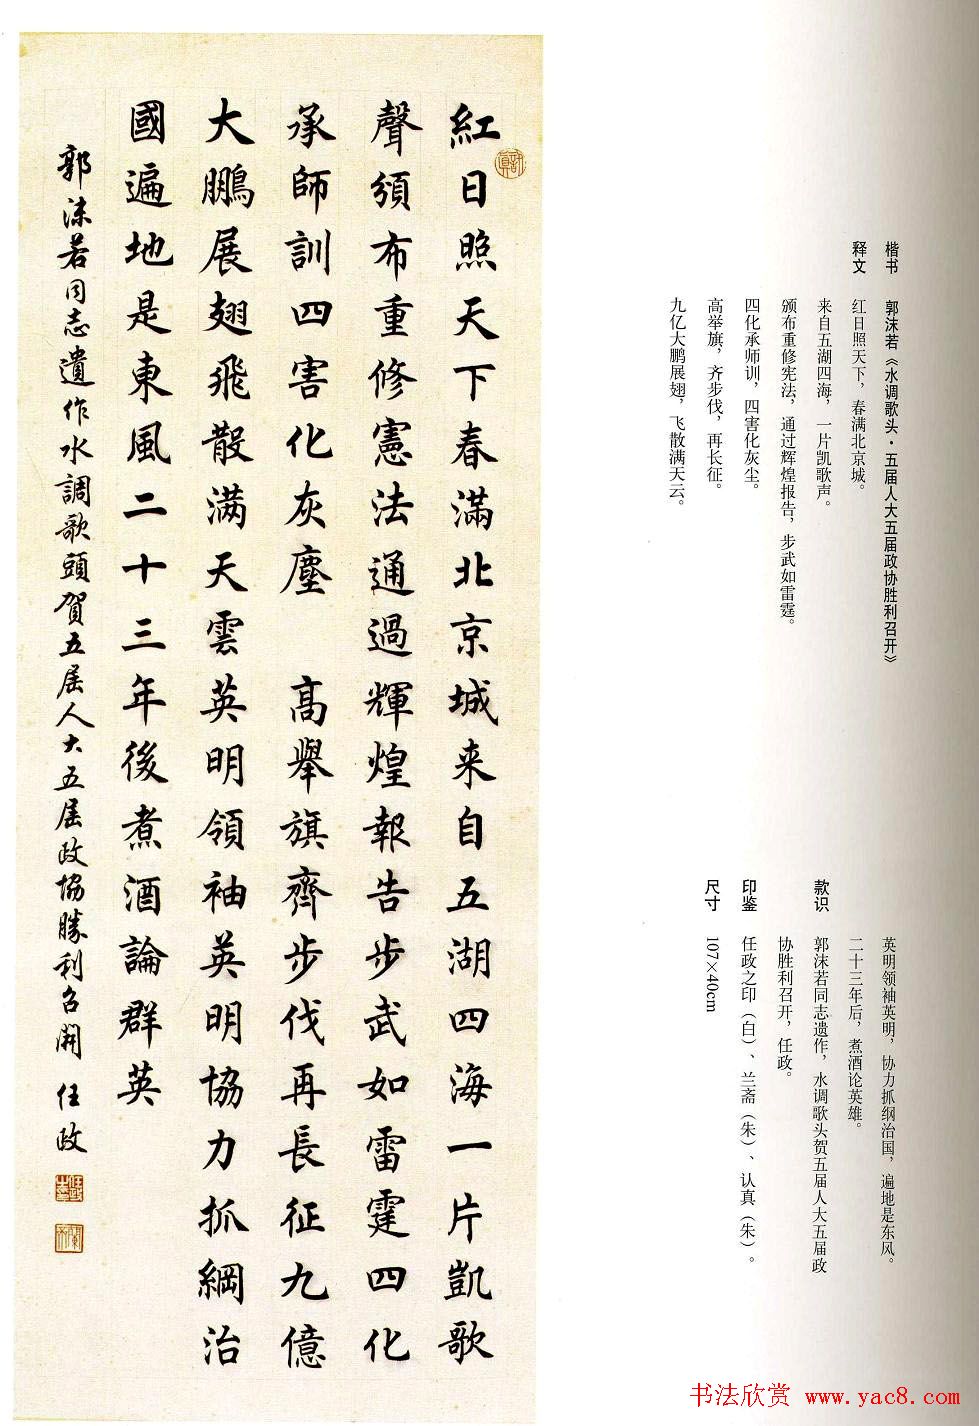 紅日照天下春滿北京城来自五湖四海一片凱歌
聲頒布重修憲法通過輝煌報告步武如雷霆四化
承師訓四害化灰塵 高舉旗齊步伐再長征九億
大鵬展翅飛散满天雲英明領袖英明協力抓綱治
國遍地是東風二十三年後煮酒論群英
郭沫若同志遺作水調歌頭賀五届人大五届政協勝利召開 任政
楷书 郭沫若《水调歌头·五届人大五届政协胜利召开》
释文 红日照天下，春满北京城。
来自五湖四海，一片凯歌声。
颁布重修宪法，通过辉煌报告，步武如雷霆。
四化承师训，四害化灰尘。
高举旗，齐步伐，再长征。
九亿大鹏展翅，飞散满天云。
英明领袖英明，协力抓纲治国，遍地是东风。
二十三年后，煮酒论英雄。
款识 郭沫若同志遗作，水调歌头贺五届人大五届政
协胜利召开，任政。
印鉴 任政之印（白）、兰斋（朱）、认真（朱）。
尺寸 107×40cm
书法欣赏 www.yac8.com